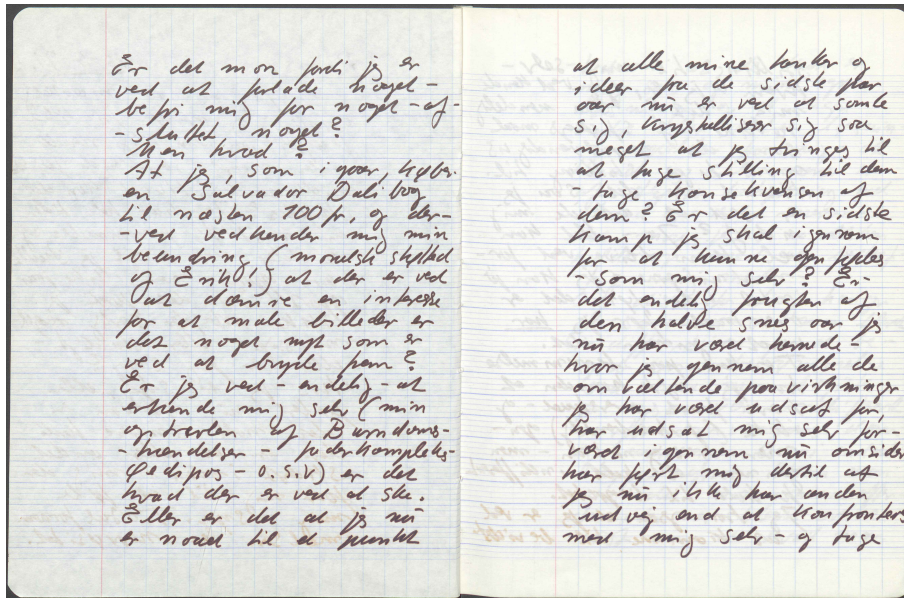 Er det mon fordi jeg er
ved at forlade noget -
befri mig for noget - af-
- sluttet noget?
Men hvad?
At jeg, som i gaar, køber
en Salvador Dali bog
til næsten 100 fr, og der-
- ved vedkender mig min
beundring (moralsk skyld
af Erik!) at der er ved
at dæmre en interesse
for at male billeder er
det noget nyt som er
ved at bryde frem?
Er jeg ved - endelig - at
erkende mig selv (min
optrævlen af Barndoms-
- hændelser - faderkompleks -
Ødipos - o.s.v) er det
hvad der er ved at ske.
Eller er det at jeg nu
er naad til et punkt
at alle mine tanker og
ideer fra de sidste par
aar nu er ved at samle
sig, krystalliserer sig saa
meget at jeg tvinges til
at tage stilling til dem
- tage konsekvensen af
dem? Er det en sidste
kamp jeg skal igennem
for at kunne genfødes
- som mig selv? Er
det endelig frugten af
den halve snes aar jeg
nu har været hernede -
hvor jeg gennem alle de
om væltende paavirkninger
jeg har været udsat for,
har udsat mig selv for -
været igennem nu omsider
har ført mig dertil at
jeg nu ikke har anden
udvej end at konfronteres
med mig selv - og tage